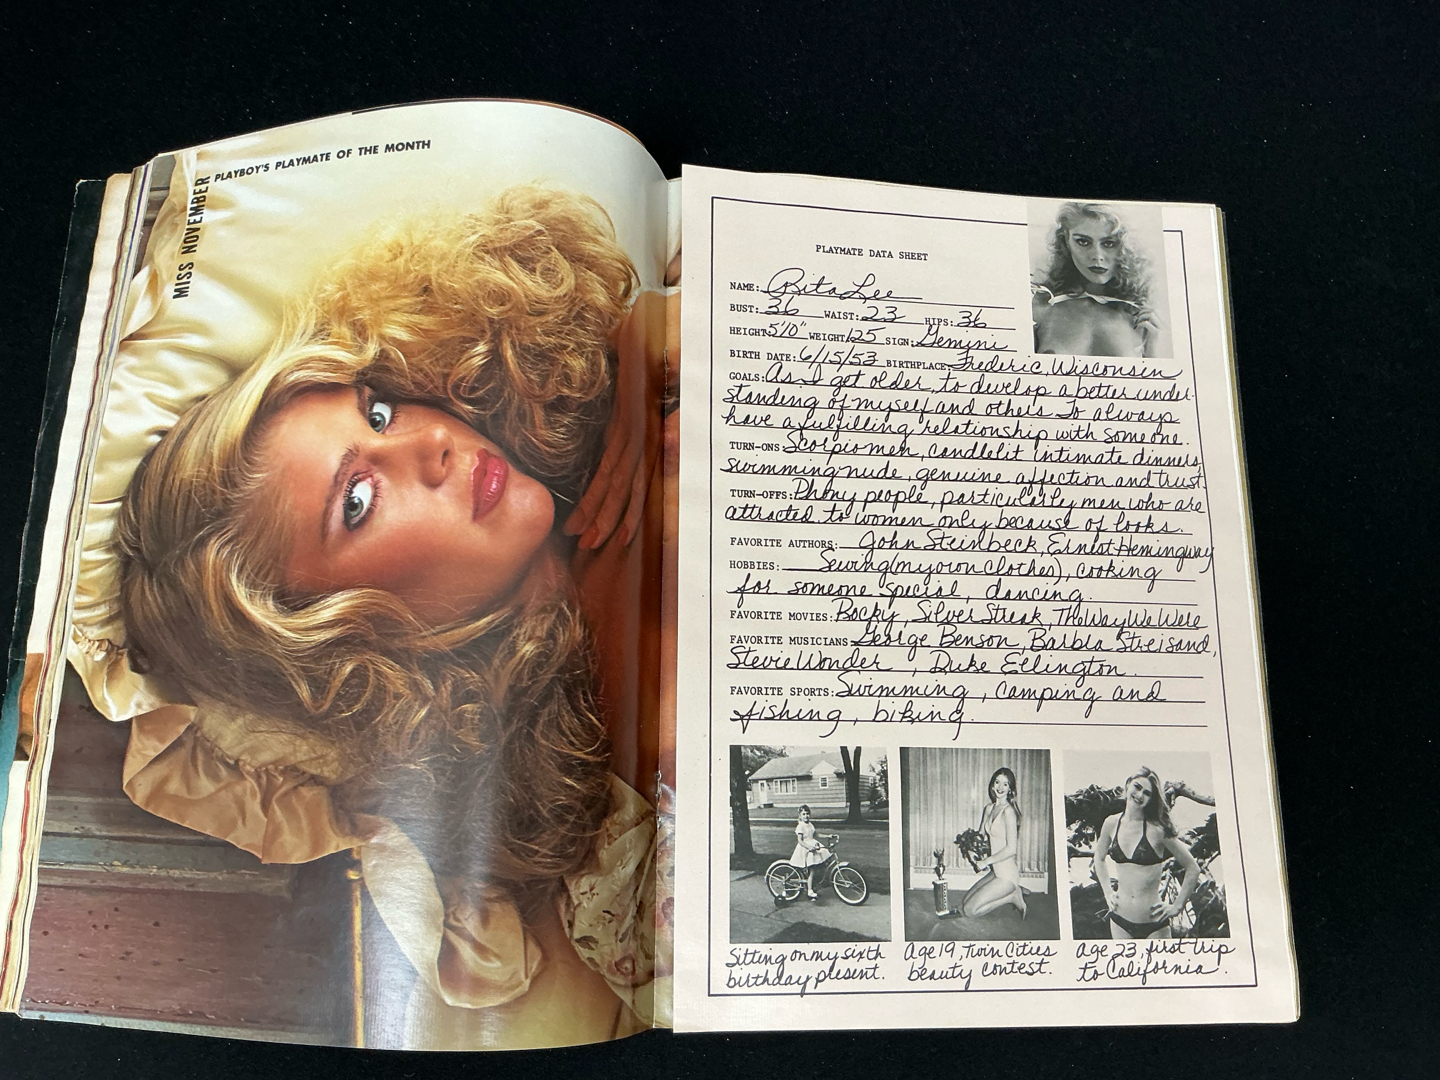 PLAYBOY'S PLAYMATE OF THE MONTH
MISS NOVEMBER
PLAYMATE DATA SHEET
NAME: Rita Lee
BUST: 36 WAIST: 23 HIPS: 36
HEIGHT: 5'10" WEIGHT: 125 SIGN: Gemini
BIRTH DATE: 6/15/53 BIRTHPLACE: Frederic, Wisconsin
GOALS: As I get older, to develop a better under-
standing of myself and others. To always
have a fulfilling relationship with someone.
TURN-ONS: Scorpio men, candlelit intimate dinners,
swimming nude, genuine affection and trust.
TURN-OFFS: Phony people, particularly men who are
attracted to women only because of looks.
FAVORITE AUTHORS: John Steinbeck, Ernest Hemingway
HOBBIES: Sewing (my own clothes), cooking
for someone special, dancing.
FAVORITE MOVIES: Rocky, Silver Streak, The Way We Were
FAVORITE MUSICIANS: George Benson, Barbra Streisand,
Stevie Wonder, Duke Ellington.
FAVORITE SPORTS: Swimming, camping and
fishing, biking.
Sitting on my sixth
birthday present.
Age 19, Twin Cities
beauty contest.
Age 23, first trip
to California.